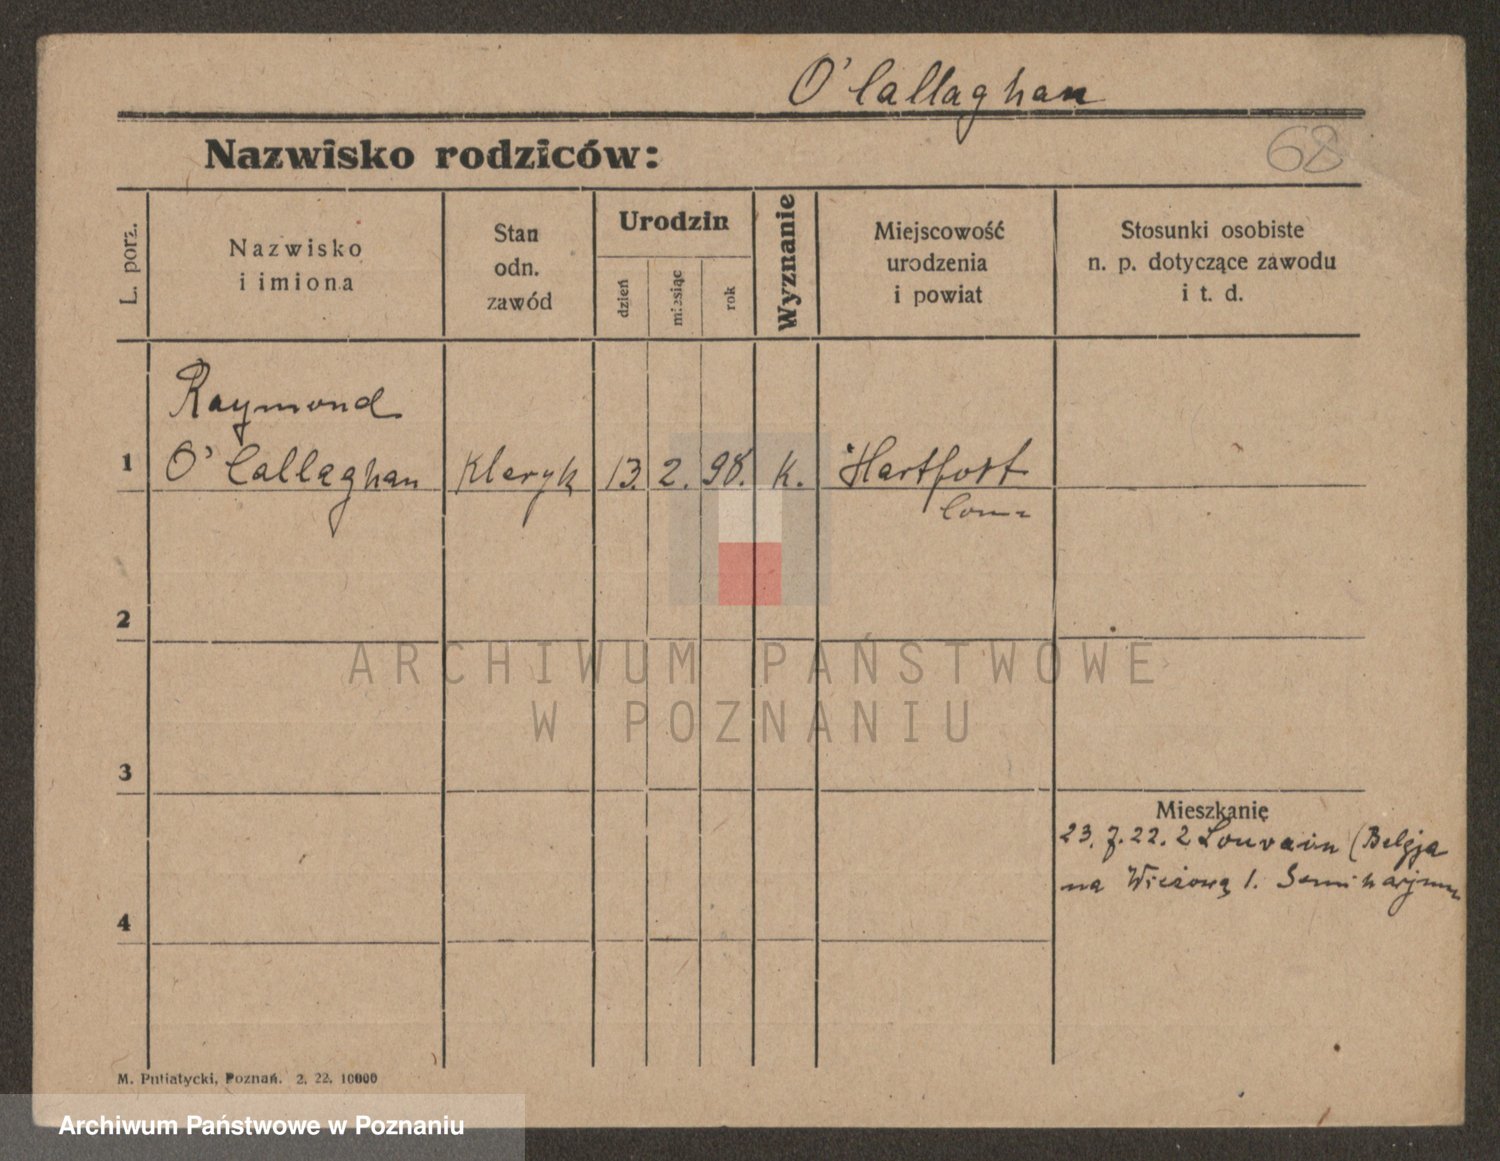 O'Callaghan
Nazwisko rodziców:
68
L. porz.
Nazwisko
i imiona
Stan
odn.
zawód
Urodzin
dzień
miesiąc
rok
Wyznanie
Miejscowość
urodzenia
i powiat
Stosunki osobiste
n. p. dotyczące zawodu
i t. d.
Raymond
1 O'Callaghan Kleryk 13. 2. 98. K. Hartfort
Conn
2
ARCHIWUM PAŃSTWOWE
W POZNANIU
3
Mieszkanie
23. 7. 22. z Louvain (Belgja
na Wieżową 1. Seminarjum
4
M. Putiatycki, Poznań. 2. 22. 10000
Archiwum Państwowe w Poznaniu